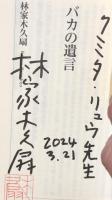 バカの遺言
林家木久扇
クミタ・リュウ先生
林家木久扇
2024
3.21